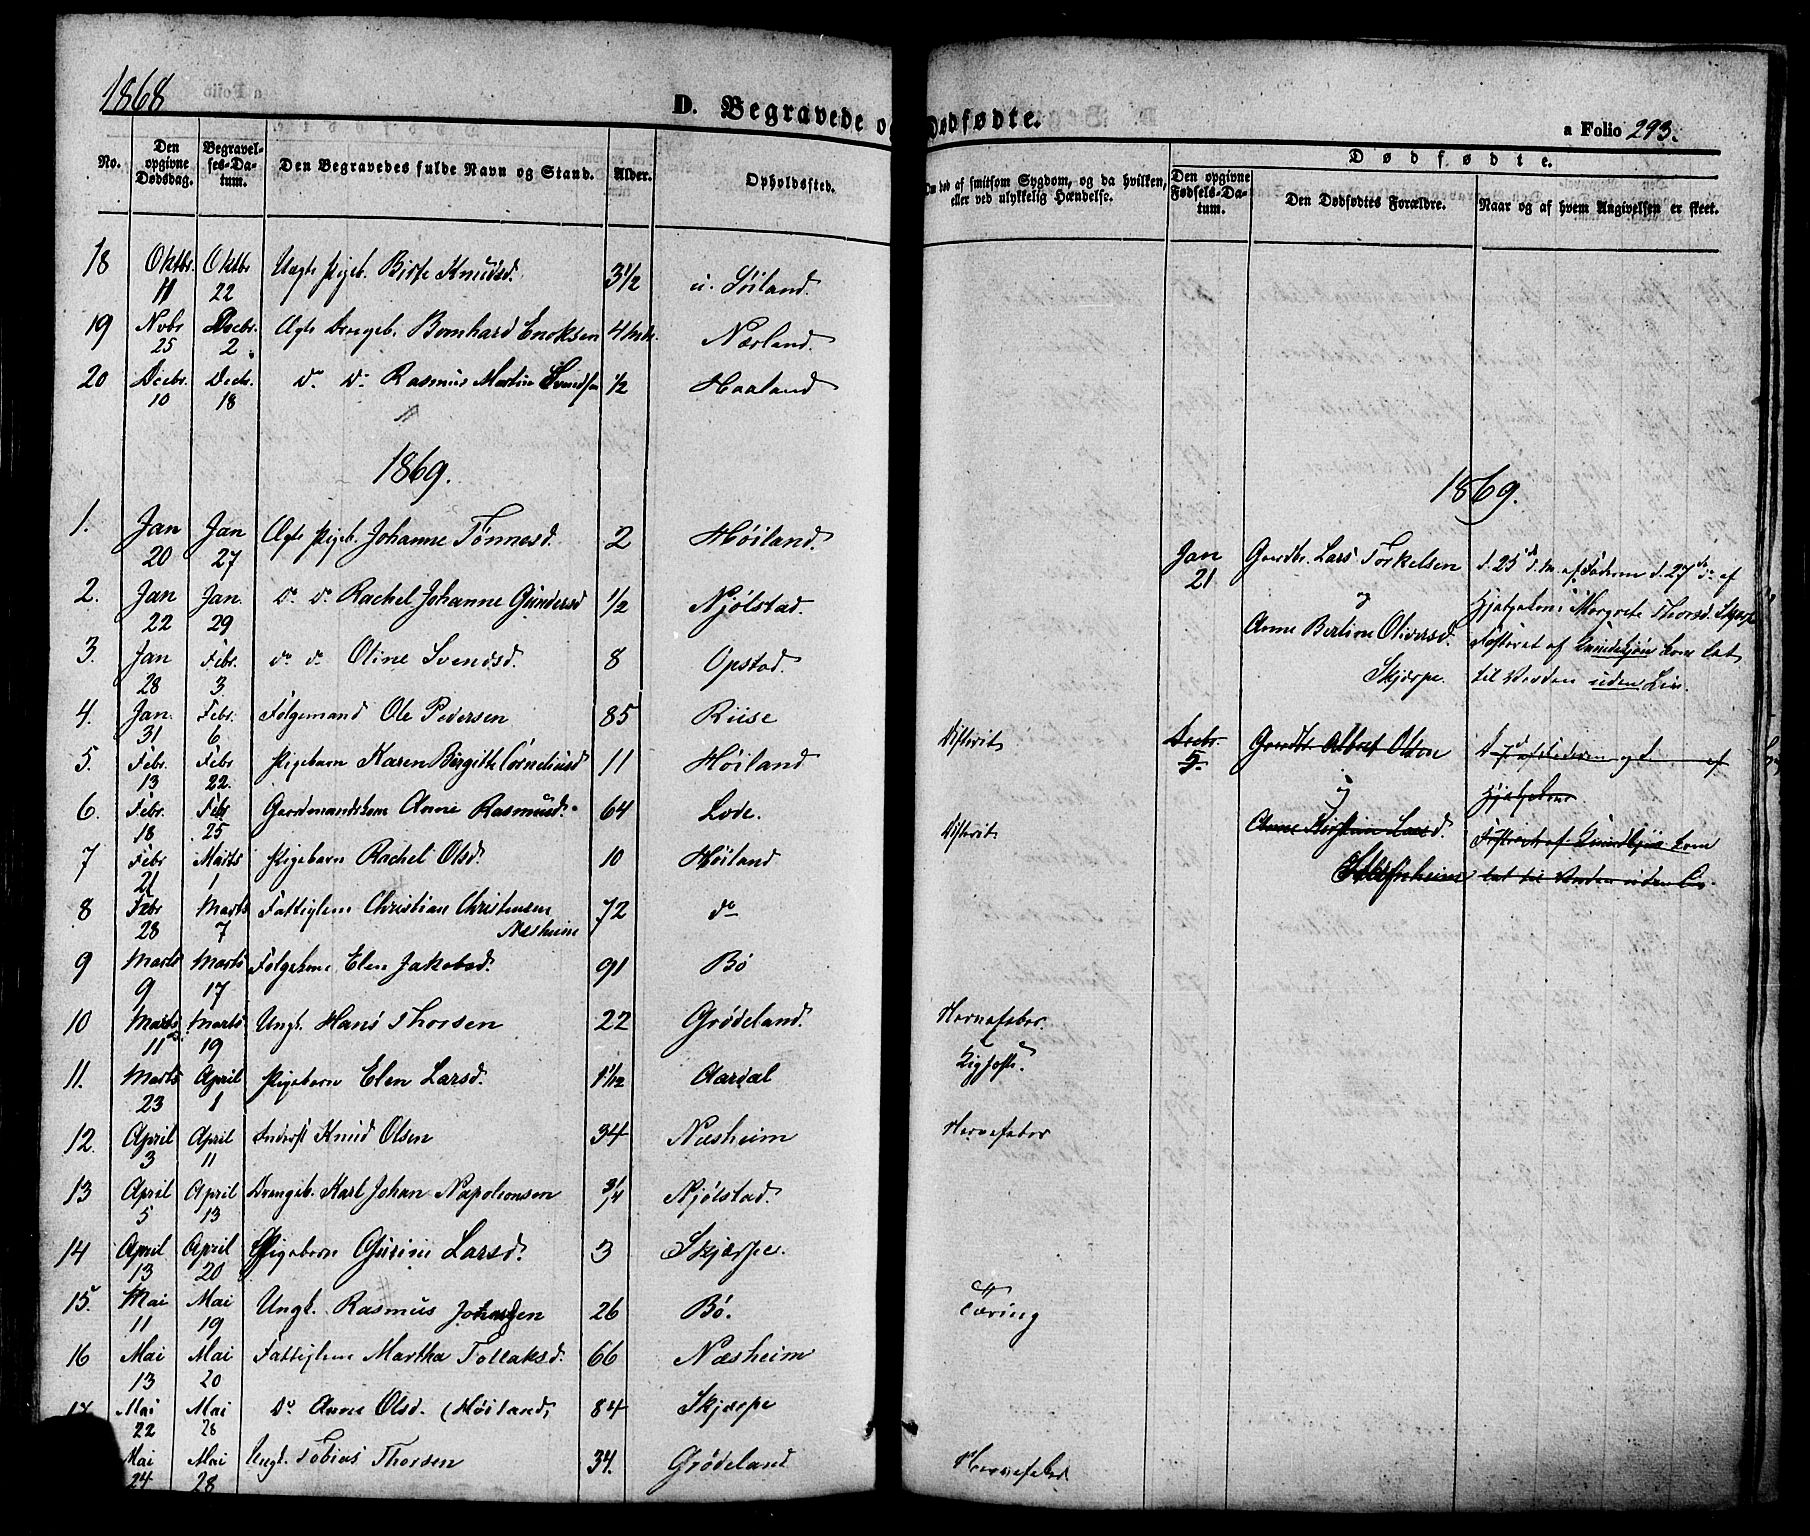 1868
D. Begravede o
Dødfødte.
a Folio 293.
No.
Den opgivne Dødsdag.
Begravel-
ses-Da-
tum.
Den Begravedes fulde Navn og Stand.
Alder.
Opholdssted.
død af smitsom Sygdom, og da hvilken,
eller ved ulykkelig Hændelse.
Dødfødte.
Den opgivne
Fødsels-Da-
tum.
Den Dødfødtes Forældre.
Naar og af hvem Angivelsen er skeet.
18 Oktbr. 11 Oktbr 22 Uægte Pigeb. Birte Knudsd. 3 1/2 u. Søiland.
19 Nobr 25 Decbr. 2 Ægte Drengeb. Bernhard Enoksen 4 Nærland.
20 Decbr. 10 Decbr. 18 do do Rasmus Martin Svendsen 1/2 Haaland
1869.
1869.
1. Jan 20 Jan 27 Ægte Pigeb. Johanne Tønnesd. 2 Høiland.
Jan 21 Gaardbr. Lars Torkelsen
og
Anne Bertine Oliversd.
Skjærpe.
d. 25de d. M. af Faderen d. 27de do af
Hjelpekone Margrete Thorsd. Skjærpe
Fosteret af Kundekjøn kom lat
til Verden uden Liv.
2. Jan 22 Jan. 29 do do Rachel Johanne Gundersd 1/2 Njølstad.
3. Jan 28 Febr. 3. do do Oline Svendsd. 8 Opstad.
4. Jan. 31 Febr. 6 Følgemand Ole Pedersen 85 Riise
5. Febr. 13 Febr 22. Pigebarn Karen Birgitte Corneliusd 11 Høiland Difterit
Decbr. 5. Gaardbr Albret Olsen
og
Anne Kirstine Larsd.
D. af Faderen og d. af
Hjelpekone
Fosteret af Kundkjøn kom
lat til Verden uden Liv.
6. Febr. 18 Febr 25 Gaardmandskone Anne Rasmusd. 64 Lode.
7 Febr 21 Marts 1 Pigebarn Rachel Olsd. 10 Høiland Difterit
8 Febr 28 Marts 7 Fattiglem Christian Christensen Næsheim 72 do
9 Marts 9 Marts 17 Følgekone Elen Jakobsd. 91 Bø
10 Marts 11 Marts 19 Ungk. Hans Thorsen 22 Grødeland. Nervefeber.
11. Marts 23 April 1 Pigebarn Elen Larsd. 1 1/12 Aardal Kighoste.
12. April 3 April 11 Inderst Knud Olsen 34 Næsheim Nervefeber
13 April 5 April 13 Drengeb. Karl Johan Napoleonsen 3/4 Njølstad.
14 April 13 April 20 Pigebarn Gurine Larsd. 3 Skjærpe.
15. Mai 11 Mai 19 Ungk. Rasmus Johnsen 26 Bø. Tæring
16 Mai 13 Mai 20 Fattiglem Martha Tollaksd. 66 Næsheim
17 Mai 22 Mai 28 Do Anne Olsd. (Høiland) 84 Skjærpe
Mai 24 Mai 28 Ungk. Tobias Thorsen 34. Grødeland Nervefeber